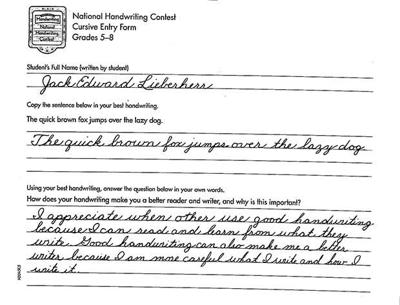 Handwriting
National
Handwriting
Contest
National Handwriting Contest
Cursive Entry Form
Grades 5–8
Student's Full Name (written by student)
Jack Edward Lieberherr
Copy the sentence below in your best handwriting.
The quick brown fox jumps over the lazy dog.
The quick brown fox jumps over the lazy dog
Using your best handwriting, answer the question below in your own words.
How does your handwriting make you a better reader and writer, and why is this important?
I appreciate when other use good handwriting
because I can read and learn from what they
write. Good handwriting can also make me a better
writer because I am more careful what I write and how I
write it.